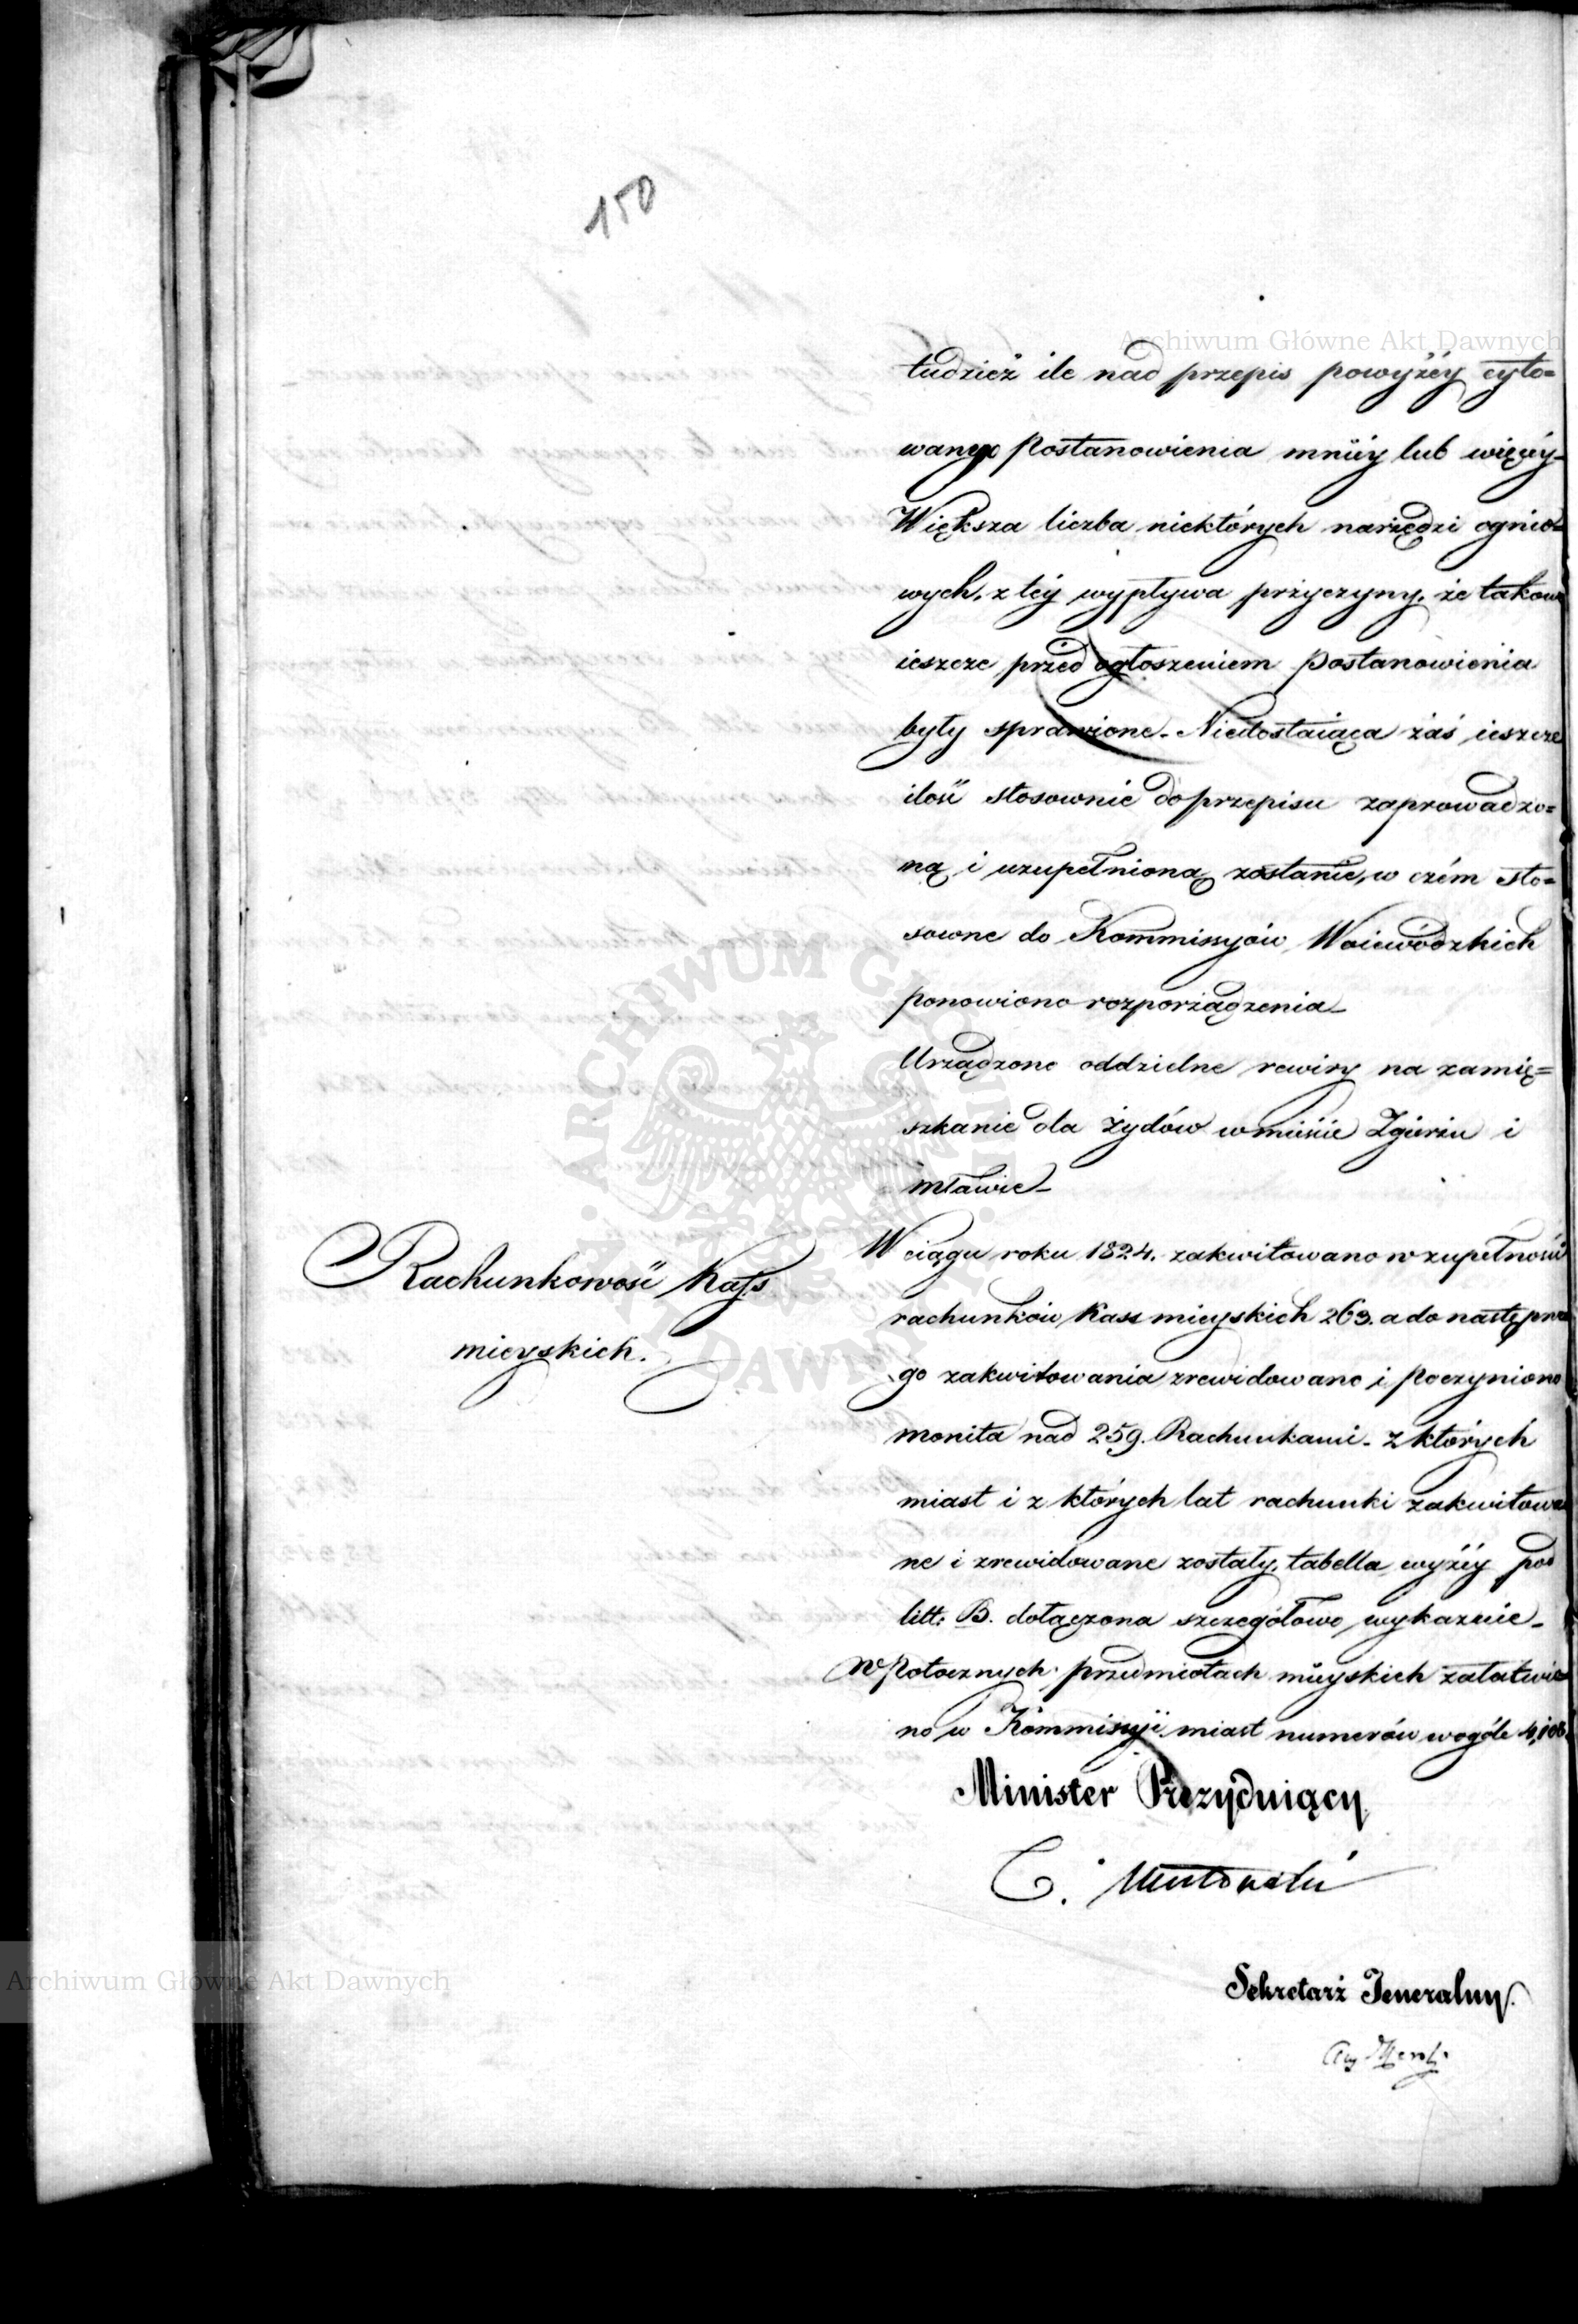 150
Archiwum Główne Akt Dawnych
tudzież ile nad przepis powyżéy cyto=
wanego Postanowienia mniéy lub więcéy_
Większa liczba niektórych narzędzi ognio=
wych, z téy wypływa przyczyny, że takowe
ieszcze przed ogłoszeniem Postanowienia
były sprawione. Niedostaiąca zaś ieszcze
ilość stosownie do przepisu zaprowadzo=
ną i uzupełnioną zostanie, w czém sto=
sowne do Kommissyów Woiewódzkich
ponowiono rozporządzenia_
Urządzono oddzielne rewiry na zamię=
szkanie dla żydów w mieście Zgierzu i
Mławie_
Rachunkowość Kass
mieyskich.
W ciągu roku 1824. zakwitowano w zupełności
rachunków Kass mieyskich 263. a do następne
go zakwitowania zrewidowano i poczyniono
monita nad 259. Rachunkami. z których
miast i z których lat rachunki zakwitowa
ne i zrewidowane zostały, tabella wyżéy pod
litt: B. dołączona szczegółowo wykazuie_
W Potocznych przedmiotach mieyskich załatwio
no w Kommissyi miast numerów wogóle
Minister Prezyduiący
Sekretarz Jeneralny.
ARCHIWUM GŁÓWNE AKT DAWNYCH
Archiwum Główne Akt Dawnych